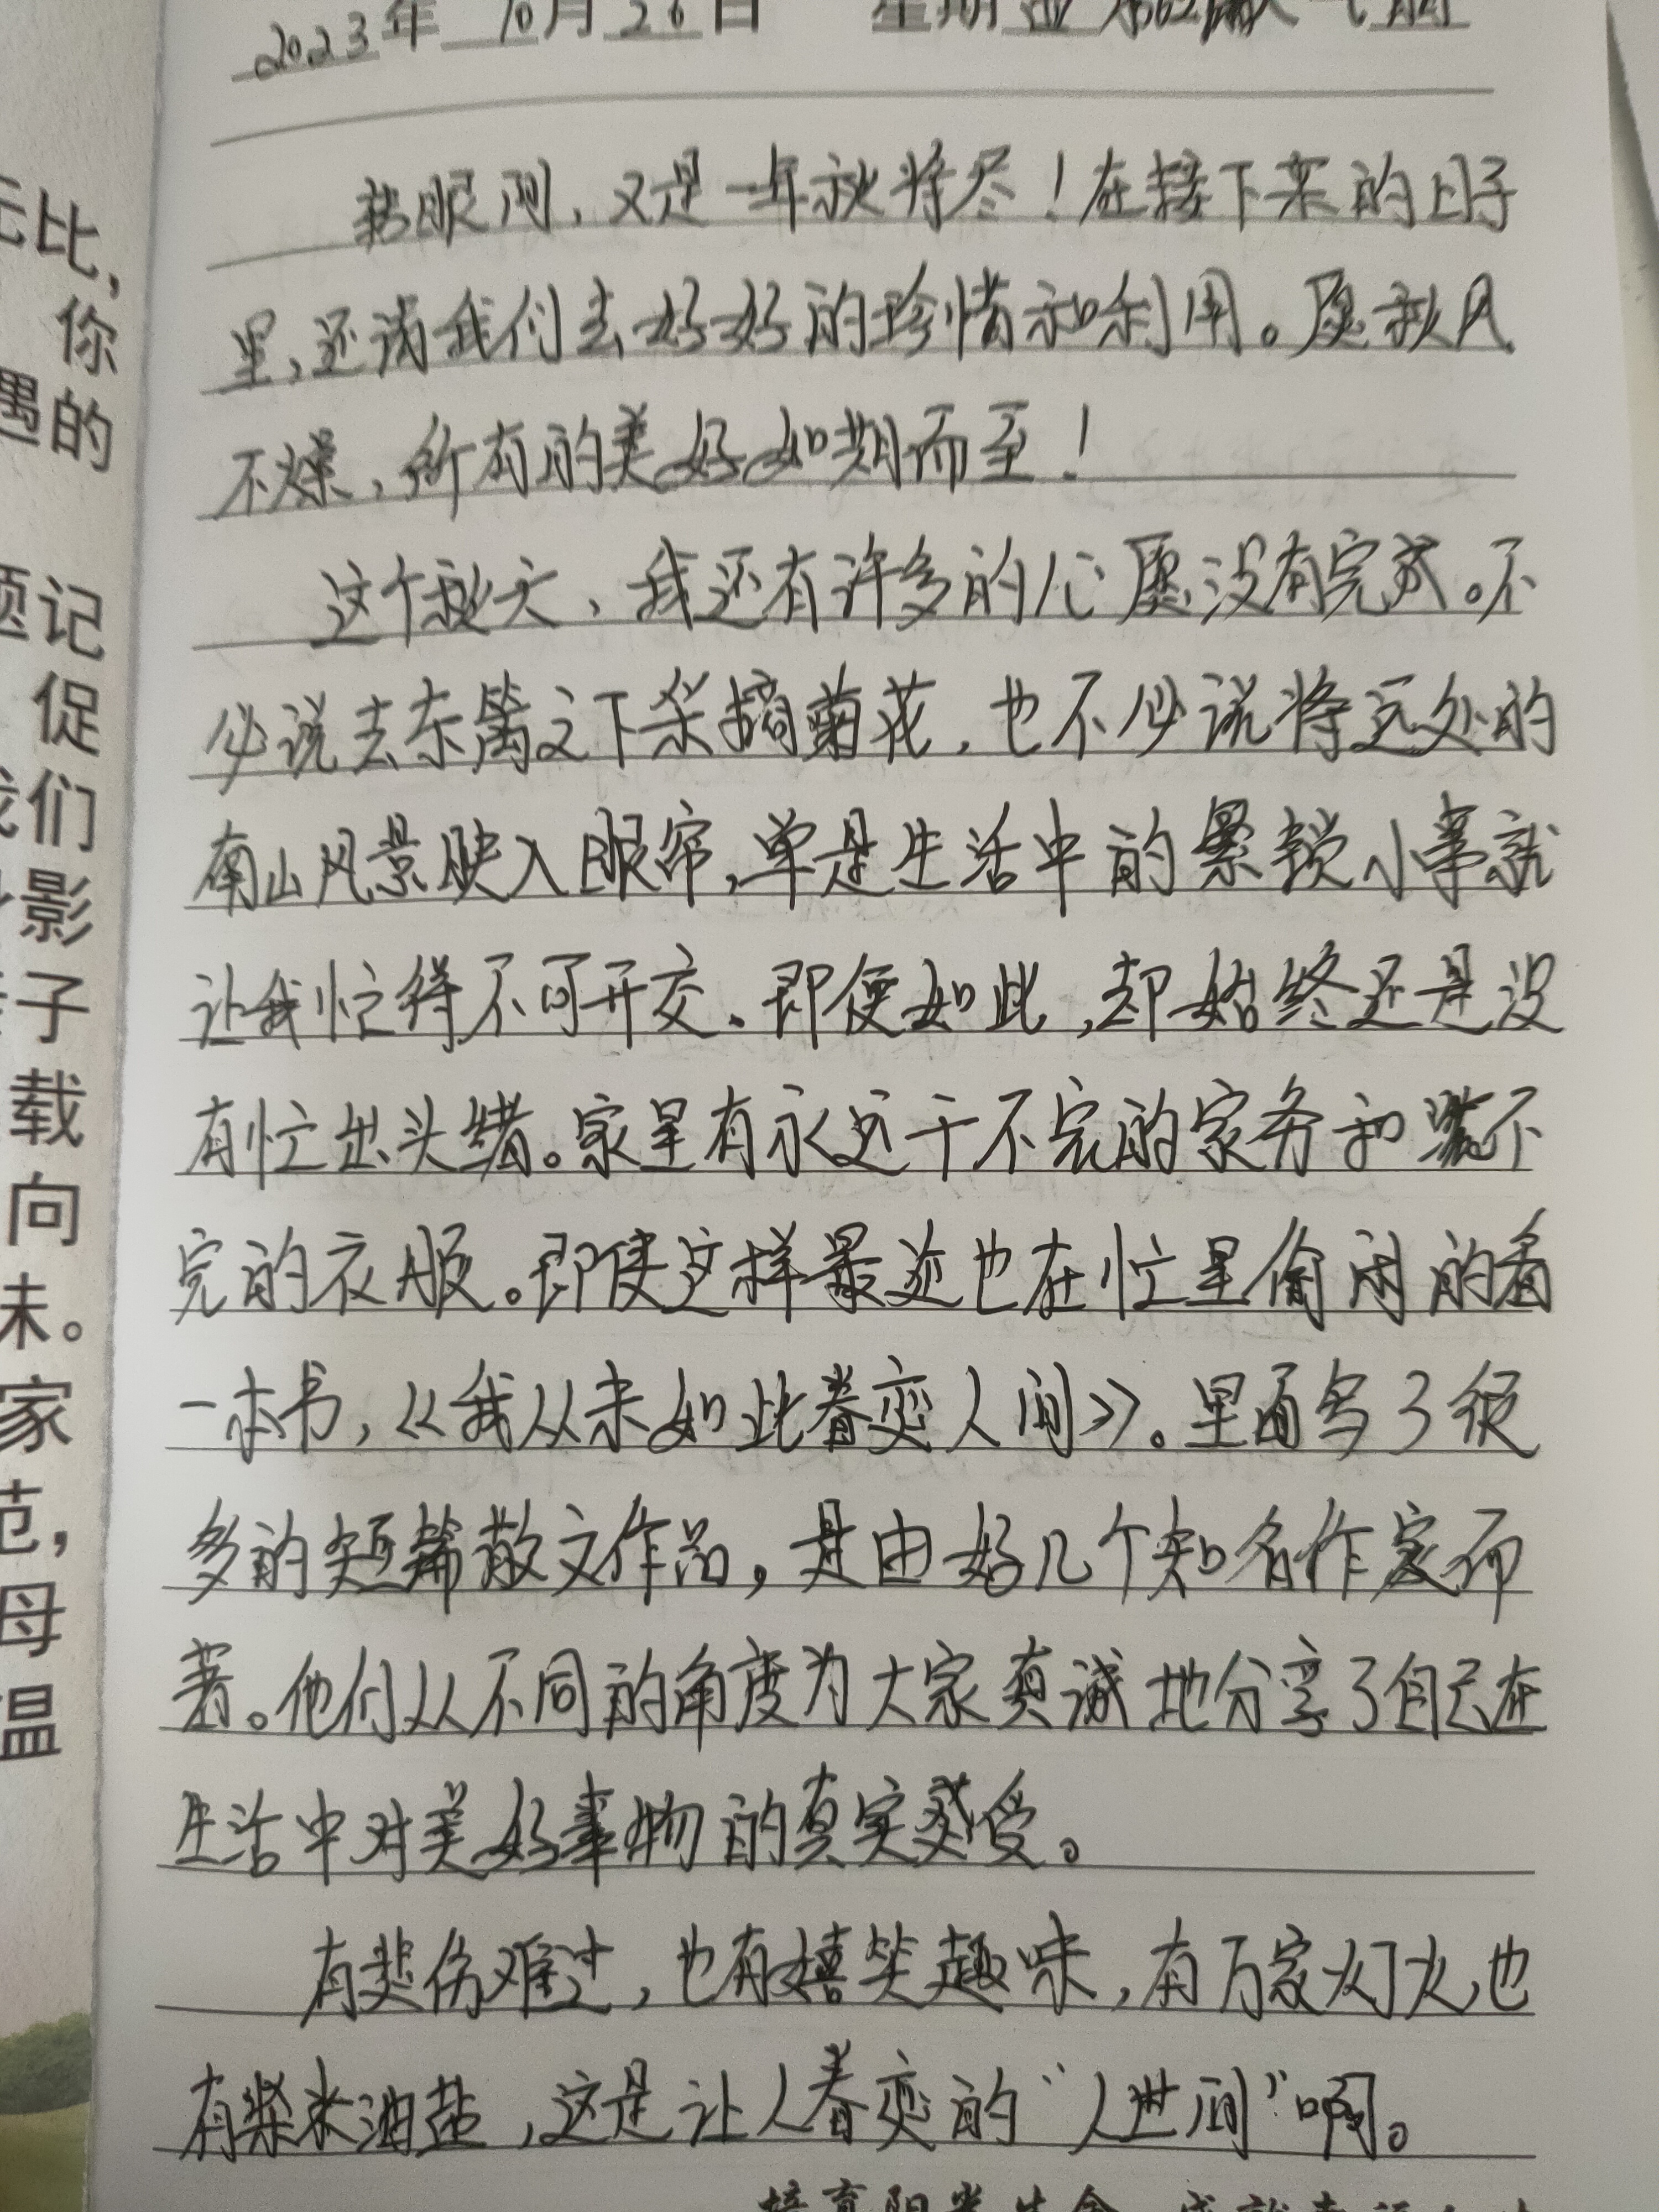 2023年10月26日 星期
转眼间，又是一年秋将尽！在接下来的日子
里，还请我们去好好的珍惜和利用。愿秋风
不燥，所有的美好如期而至！
这个秋天，我还有许多的心愿没有完成。不
必说去东篱之下采摘菊花，也不必说将远处的
南山风景映入眼帘，单是生活中的繁锁小事就
让我忙得不可开交。即便如此，却始终还是没
有忙出头绪。家里有永远干不完的家务和洗不
完的衣服。即使这样最近也在忙里偷闲的看
一本书，《我从未如此眷恋人间》。里面写了很
多的短篇散文作品，是由好几个知名作家所
著。他们从不同的角度为大家真诚地分享了自己在
生活中对美好事物的真实感受。
有悲伤难过，也有嬉笑趣味，有万家灯火，也
有柴米油盐，这是让人眷恋的“人世间”啊。
比，
你
遇的
题记
促
我们
影
子
载
向
未。
家
范，
母
温